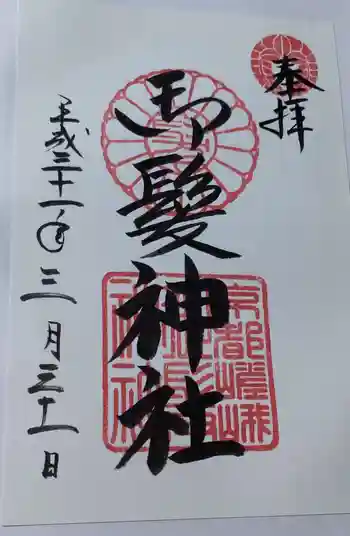 奉拝
御髪神社
平成三十一年三月三十一日
京都嵯峨